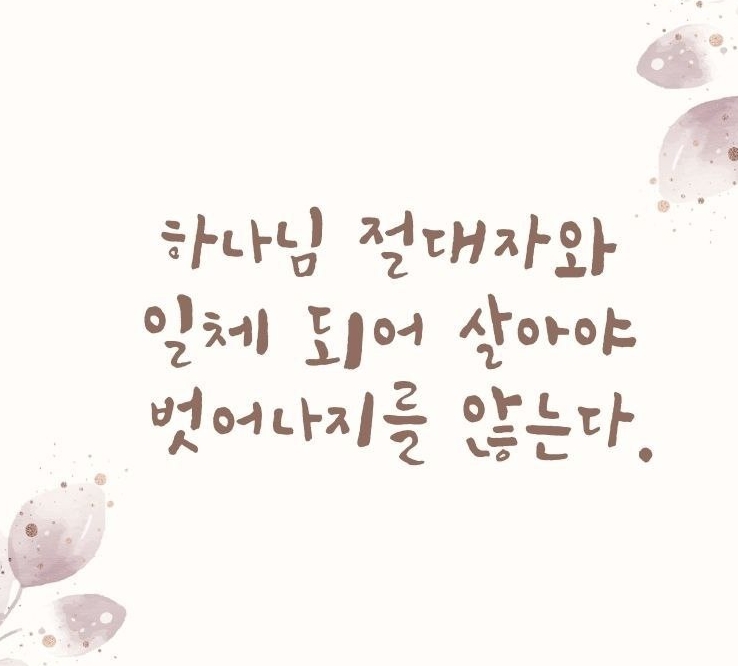 하나님 절대자와
일체 되어 살아야
벗어나지를 않는다.